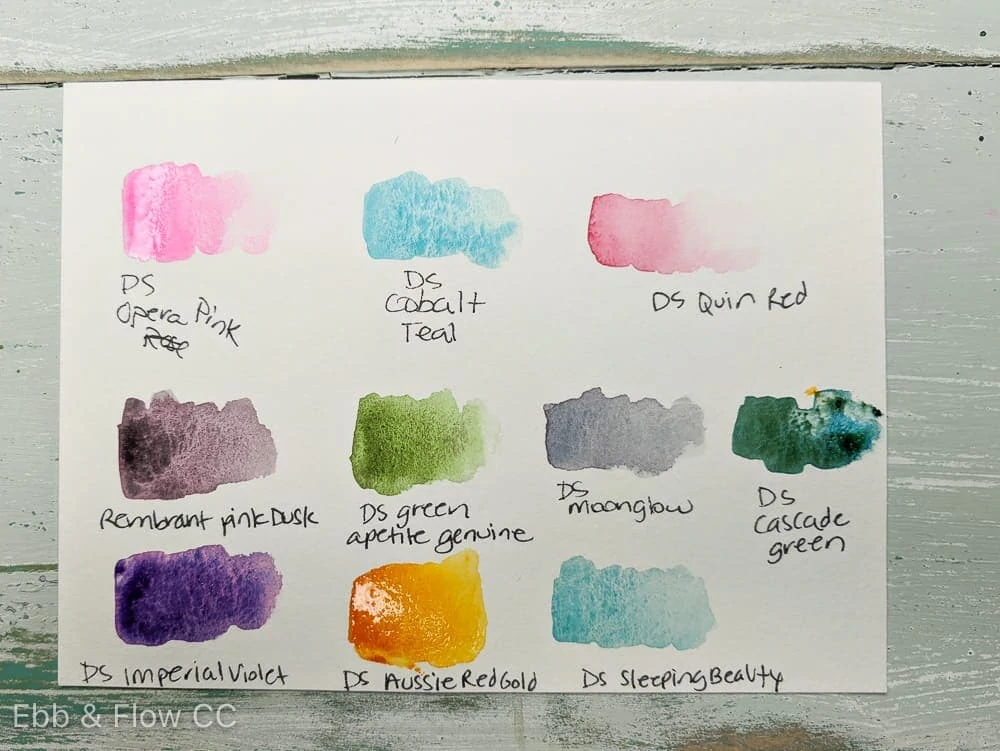 DS
Opera Pink
Rose
DS
Cobalt
Teal
DS Quin Red
Rembrant pink Dusk
DS green
apetite genuine
DS
moonglow
DS
cascade
green
DS Imperial Violet
DS Aussie Red Gold
DS Sleeping Beauty
Ebb & Flow CC